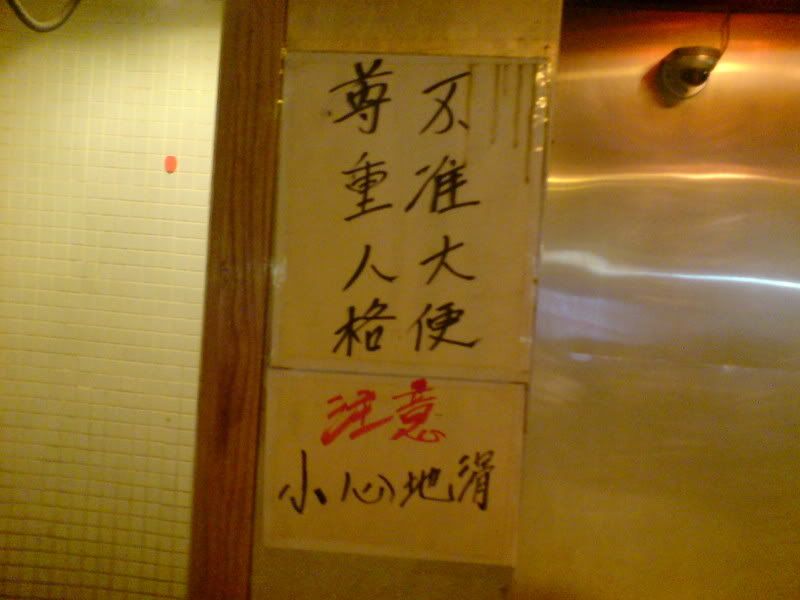 不准大便
尊重人格
注意
小心地滑